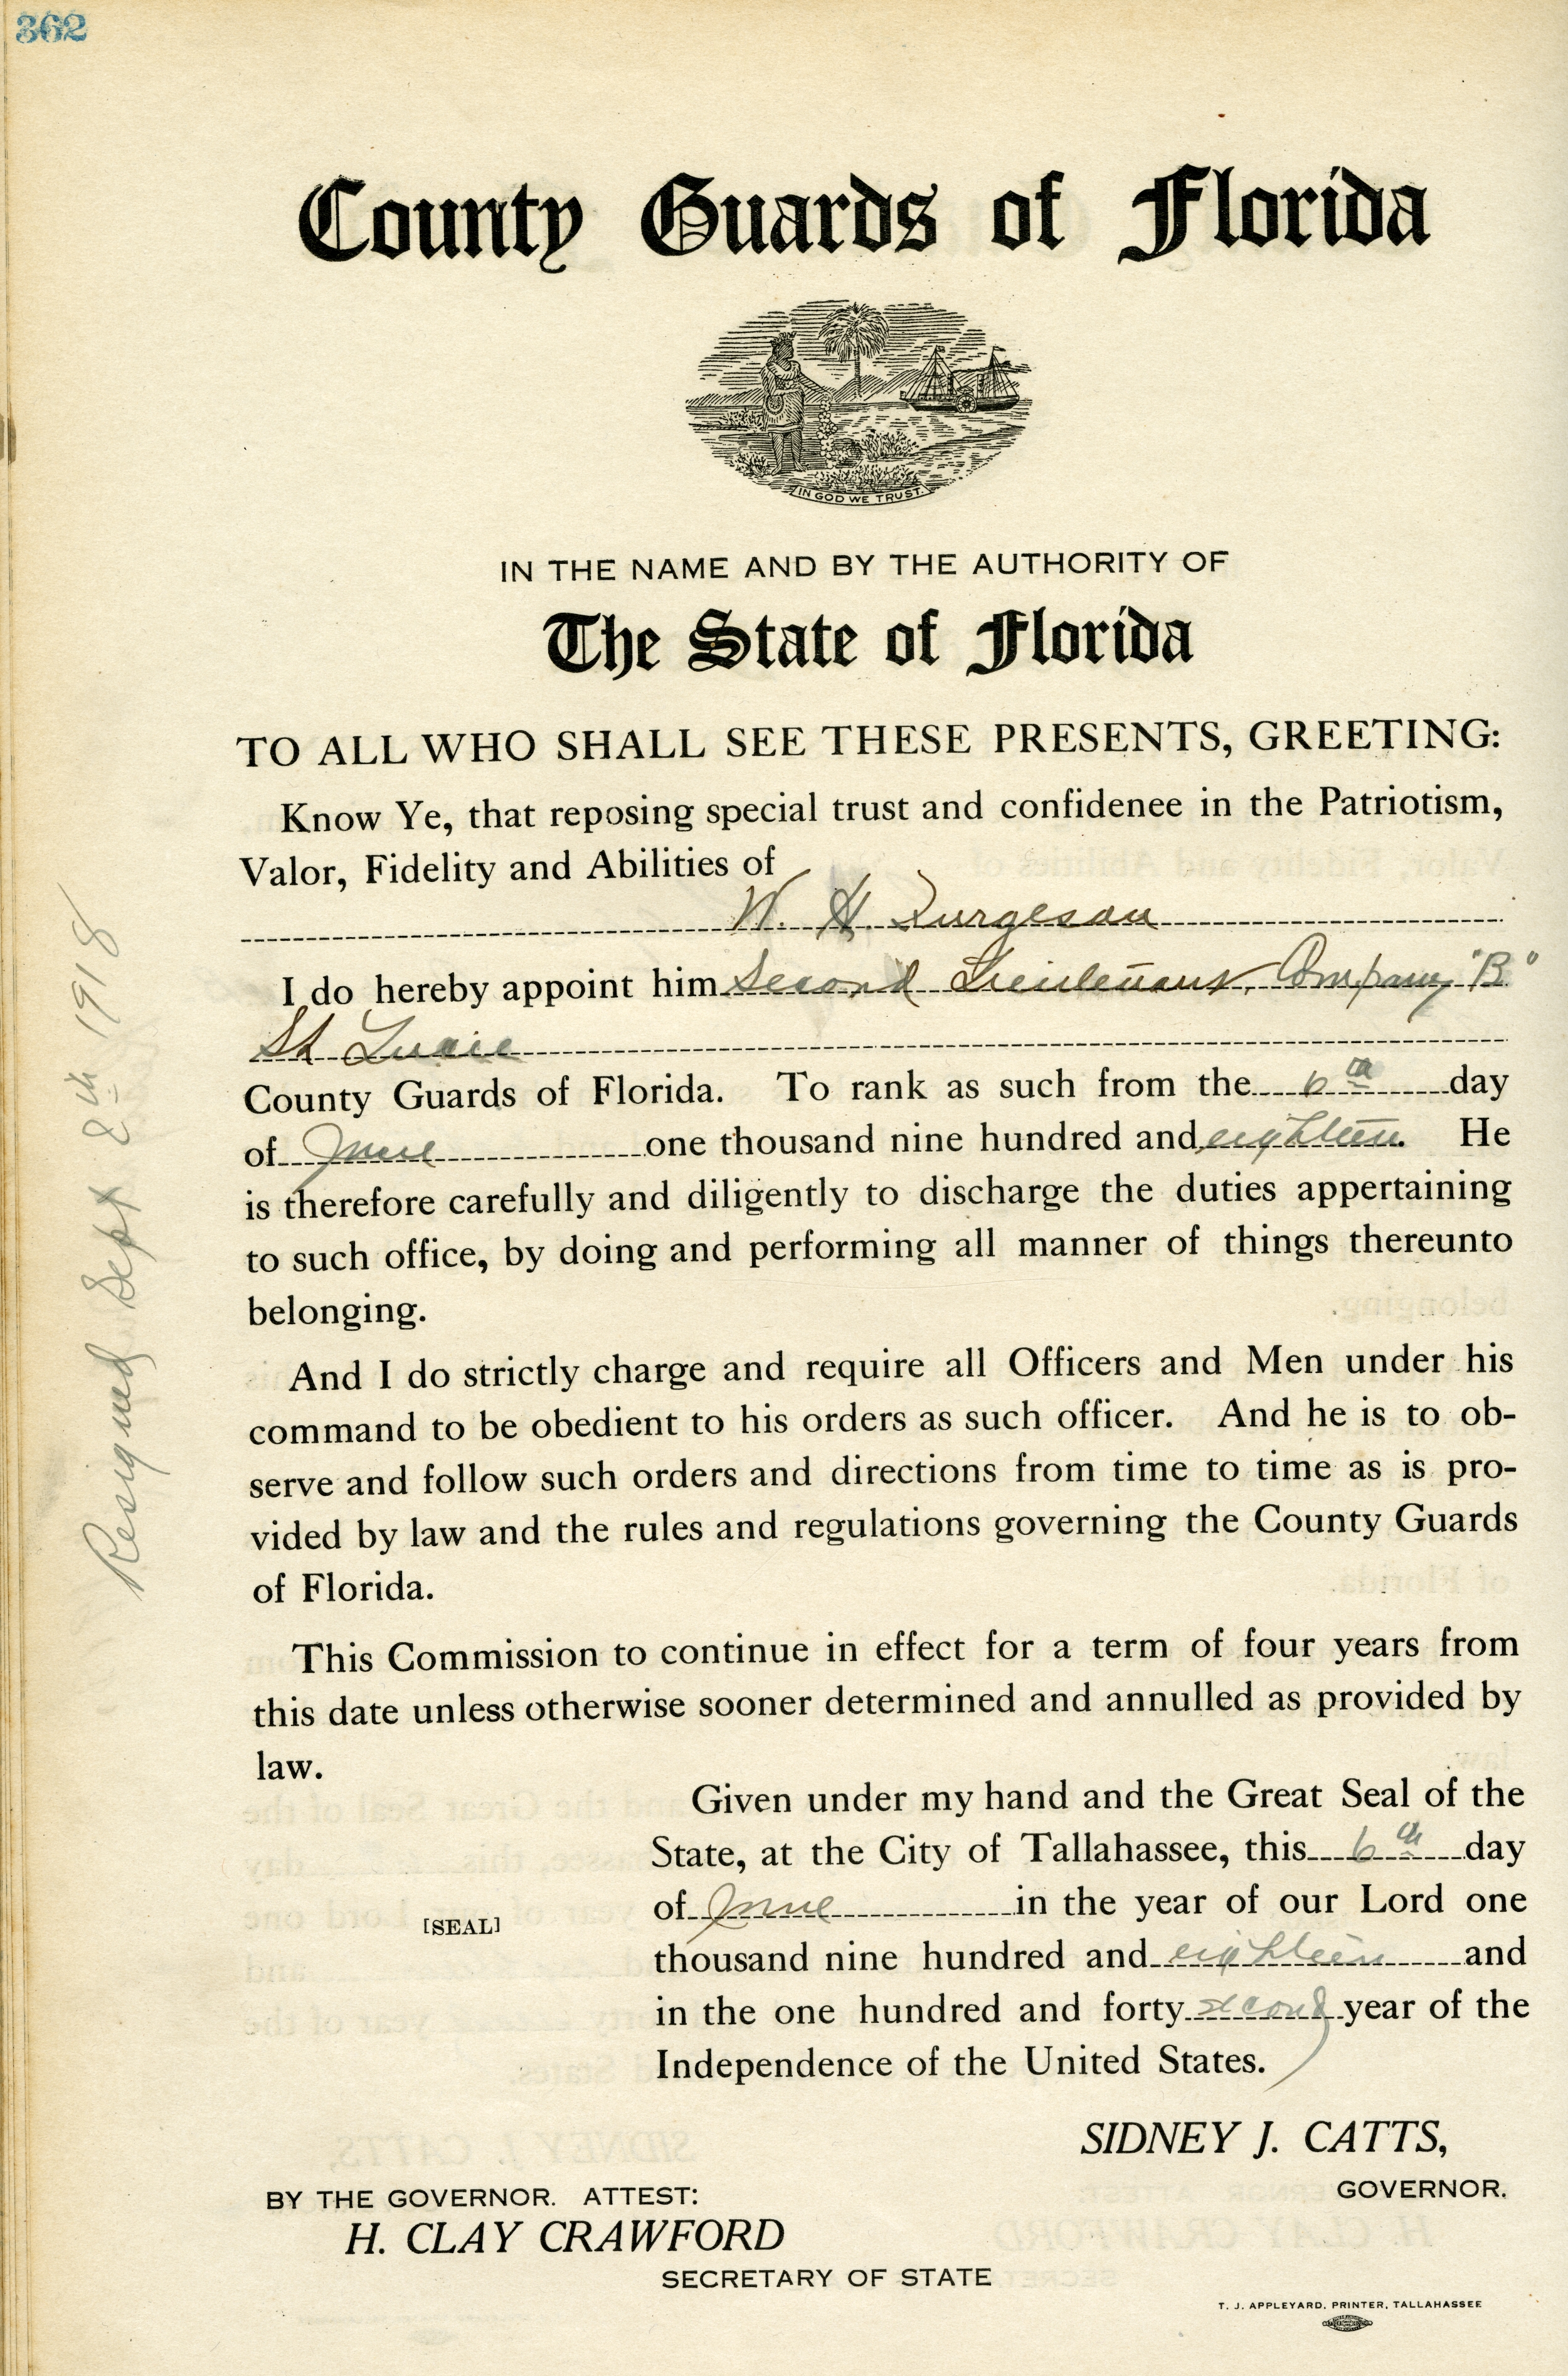 362
County Guards of Florida
IN GOD WE TRUST.
IN THE NAME AND BY THE AUTHORITY OF
The State of Florida
TO ALL WHO SHALL SEE THESE PRESENTS, GREETING:
Know Ye, that reposing special trust and confidenee in the Patriotism,
Valor, Fidelity and Abilities of
W. H.
I do hereby appoint him Second Lieutenant, Company "B"
St Lucie
County Guards of Florida. To rank as such from the 6th day
of June one thousand nine hundred and eighteen. He
is therefore carefully and diligently to discharge the duties appertaining
to such office, by doing and performing all manner of things thereunto
belonging.
And I do strictly charge and require all Officers and Men under his
command to be obedient to his orders as such officer. And he is to ob-
serve and follow such orders and directions from time to time as is pro-
vided by law and the rules and regulations governing the County Guards
of Florida.
This Commission to continue in effect for a term of four years from
this date unless otherwise sooner determined and annulled as provided by
law.
Given under my hand and the Great Seal of the
State, at the City of Tallahassee, this 6th day
of June in the year of our Lord one
[SEAL]
thousand nine hundred and eighteen and
in the one hundred and forty second year of the
Independence of the United States.
SIDNEY J. CATTS,
GOVERNOR.
BY THE GOVERNOR. ATTEST:
H. CLAY CRAWFORD
SECRETARY OF STATE
T. J. APPLEYARD, PRINTER, TALLAHASSEE
Resigned Sept 8th 1918